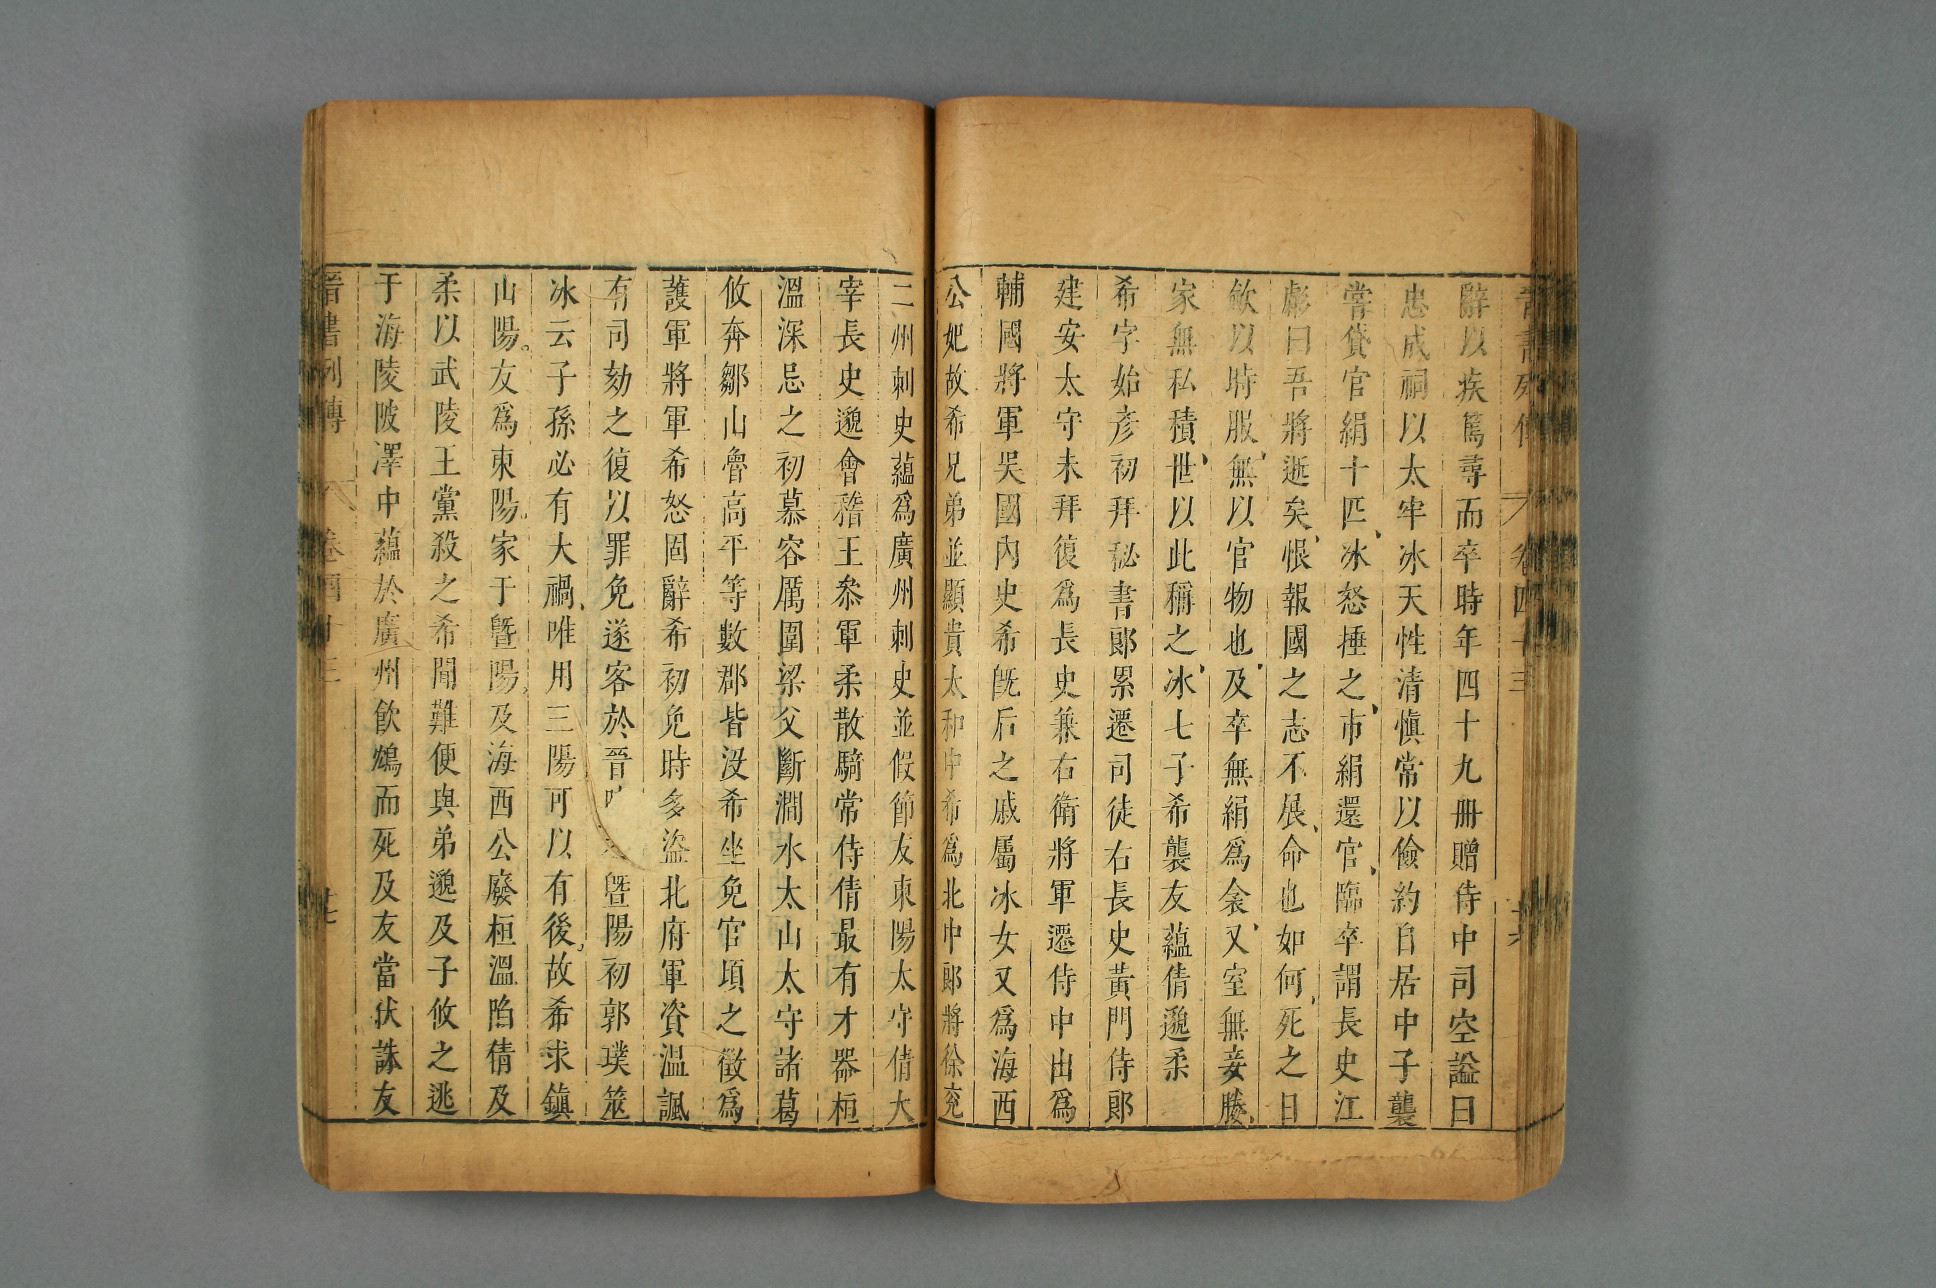 晉書列傳 卷四十三 十六
辭以疾篤尋而卒時年四十九冊贈侍中司空謚曰
忠成祠以太牢冰天性清慎常以儉約自居中子襲
嘗貸官絹十匹冰怒捶之市絹還官臨卒謂長史江
虨曰吾將逝矣恨報國之志不展命也如何死之日
斂以時服無以官物也及卒無絹爲衾又室無妾媵
家無私積世以此稱之冰七子希襲友蘊倩邈柔
希字始彦初拜秘書郎累遷司徒右長史黃門侍郎
建安太守未拜復爲長史兼右衛將軍遷侍中出爲
輔國將軍吳國內史希既后之戚屬冰女又爲海西
公妃故希兄弟並顯貴太和中希爲北中郎將徐兖
二州刺史蘊爲廣州刺史並假節友東陽太守倩太
宰長史邈會稽王叅軍柔散騎常侍倩最有才器桓
溫深忌之初慕容厲圍梁父斷澗水太山太守諸葛
攸奔鄒山魯高平等數郡皆沒希坐免官頃之徵爲
護軍將軍希怒固辭希初免時多盜北府軍資温諷
有司劾之復以罪免遂客於晉 暨陽初郭璞筮
冰云子孫必有大禍唯用三陽可以有後故希求鎮
山陽友爲東陽家于暨陽及海西公廢桓溫陷倩及
柔以武陵王黨殺之希聞難便與弟邈及子攸之逃
于海陵陂澤中蘊於廣州飲鴆而死及友當伏誅友
晉書列傳 卷四十三 十七